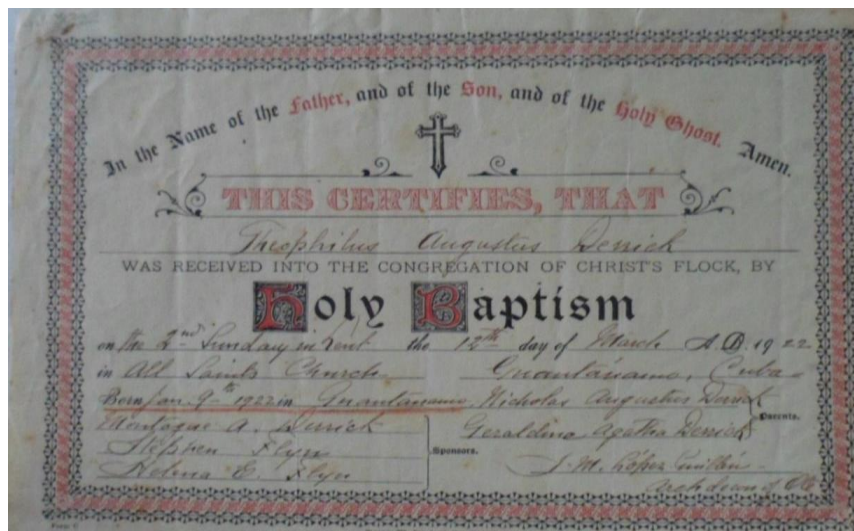 In the Name of the Father, and of the Son, and of the Holy Ghost. Amen.
THIS CERTIFIES, THAT
Theophilus Augustus Derrick
WAS RECEIVED INTO THE CONGREGATION OF CHRIST'S FLOCK, BY
Holy Baptism
on the 2nd Sunday in Lent the 12th day of March A.D. 1922
in All Saints Church Guantánamo, Cuba
Born Jan. 9th 1922 in Guantánamo, Nicholas Augustus Derrick
Parents.
Montague A. Derrick Geraldine Agatha Derrick
Stephen Flyn
Sponsors.
Helena E. Flyn J. M. López
Archdeacon of